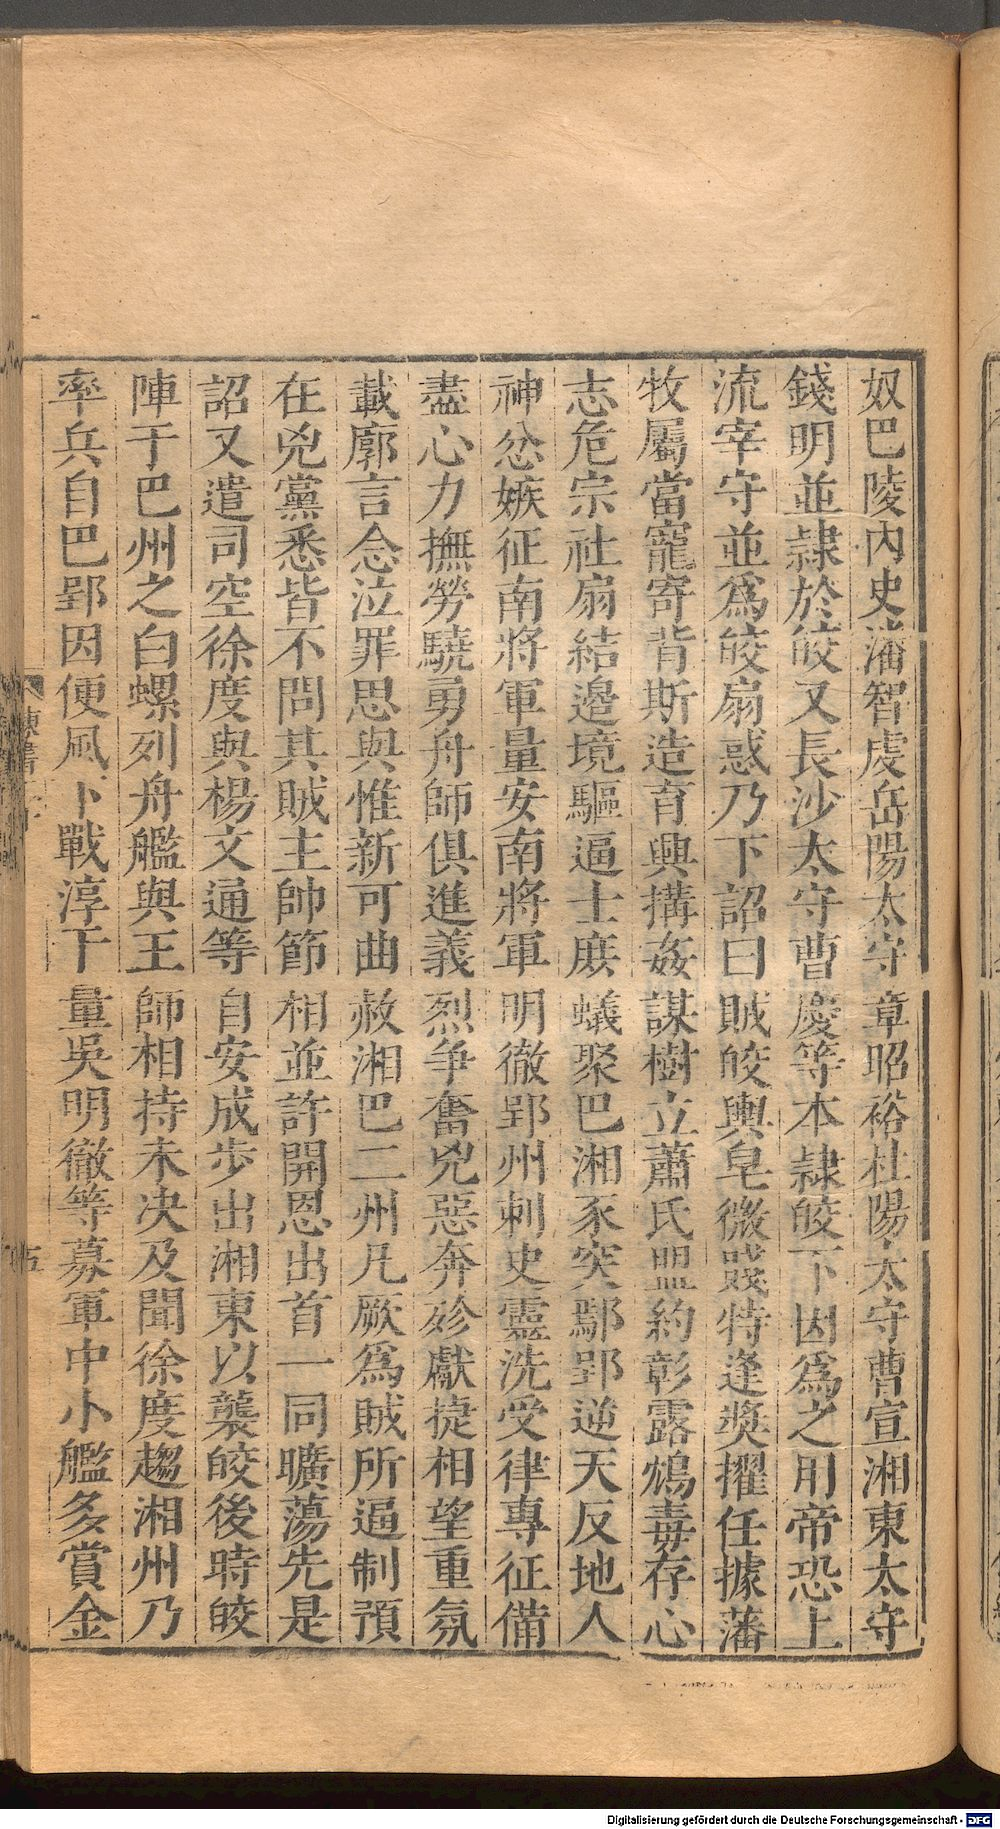 奴巴陵內史潘智虔岳陽太守章昭裕杜陽太守曹宣湘東太守
錢明並隷於皎又長沙太守曹慶等本隷皎下因爲之用帝恐上
流宰守並爲皎扇惑乃下詔曰賊皎輿皂微賤特逢奬擢任據藩
牧屬當寵寄背斯造育興搆姦謀樹立蕭氏盟約彰露鴆毒存心
志危宗社扇結邊境驅逼士庶蟻聚巴湘豕突鄢郢逆天反地人
神忿嫉征南將軍量安南將軍明徹郢州刺史靈洗受律專征備
盡心力撫勞驍勇舟師俱進義烈争奮兇惡奔殄獻捷相望重氛
載廓言念泣罪思與惟新可曲赦湘巴二州凡厥爲賊所逼制預
在兇黨悉皆不問其賊主帥節相並許開恩出首一同曠蕩先是
詔又遣司空徐度與楊文通等自安成步出湘東以襲皎後時皎
陣于巴州之白螺列舟艦與王師相持未决及聞徐度趨湘州乃
率兵自巴郢因便風下戰淳于量吳明徹等募軍中小艦多賞金
Digitalisierung gefördert durch die Deutsche Forschungsgemeinschaft - DFG